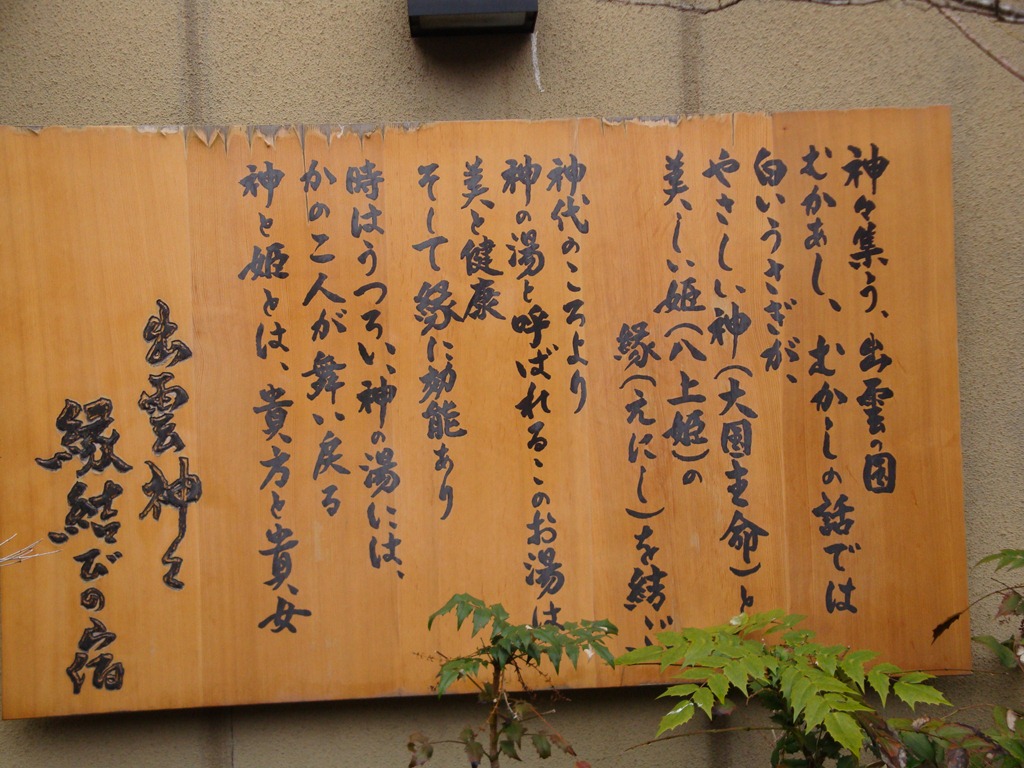 神々集う、出雲の国
むかあし、むかしの話では
白いうさぎが、
やさしい神(大国主命)と
美しい姫(八上姫)の
縁(えにし)を結び
神代のころより
神の湯と呼ばれるこのお湯は
美と健康
そして縁に効能あり
時はうつろい、神の湯には、
かの二人が舞い戻る
神と姫とは、貴方と貴女
出雲神々
縁結びの宿